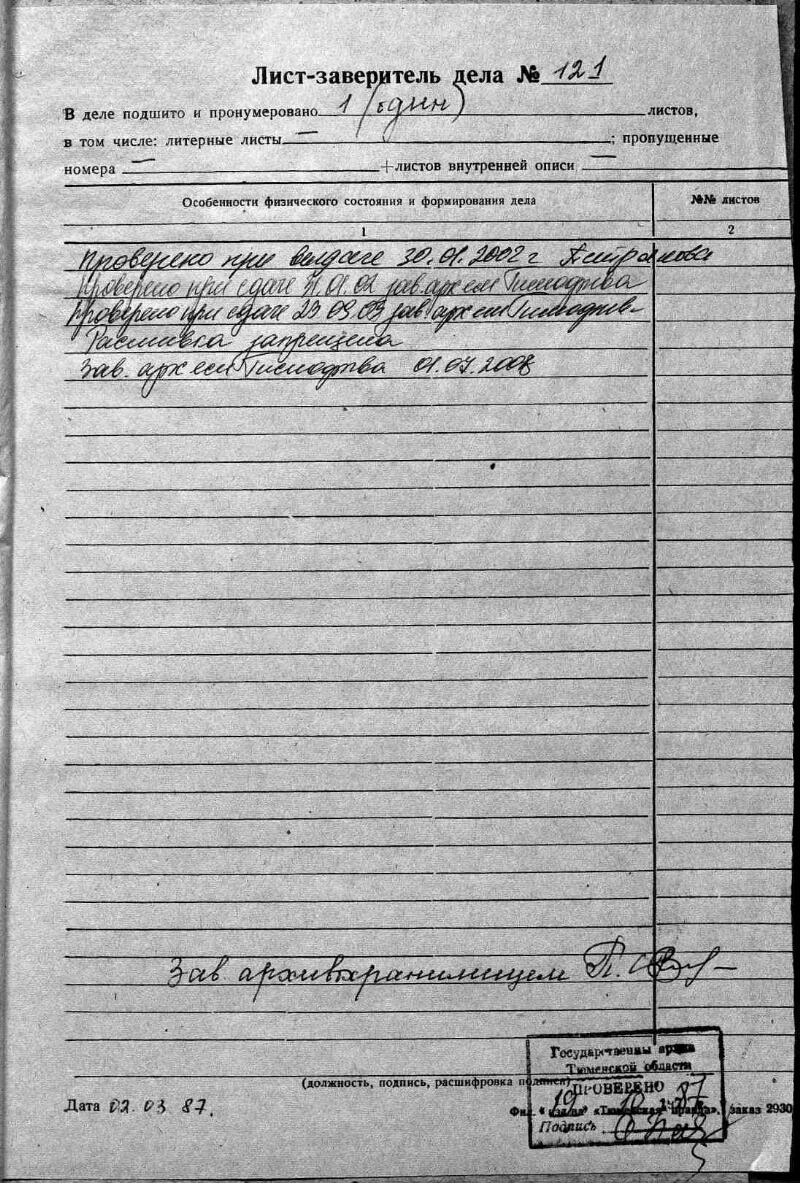 Лист-заверитель дела № 121
В деле подшито и пронумеровано 1 (один) листов,
в том числе: литерные листы — ; пропущенные
номера — +листов внутренней описи —
Особенности физического состояния и формирования дела
№№ листов
1
2
Проверено при выдаче 30.01.2002 г
Проверено при сдаче 31.01.02 зав. арх ем Тимофеева
Проверено при сдаче 23 09.03 зав. арх ем Тимофеев
Расшивка запрещена
Зав. арх ем Тимофеева 01.07.2008
Зав. архивохранилищем
Государственный архив
Тюменской области
(должность, подпись, расшифровка подписи)
ПРОВЕРЕНО
Дата 02.03 87.
19 10 1987
«Тюменская правда». заказ 2930
Подпись